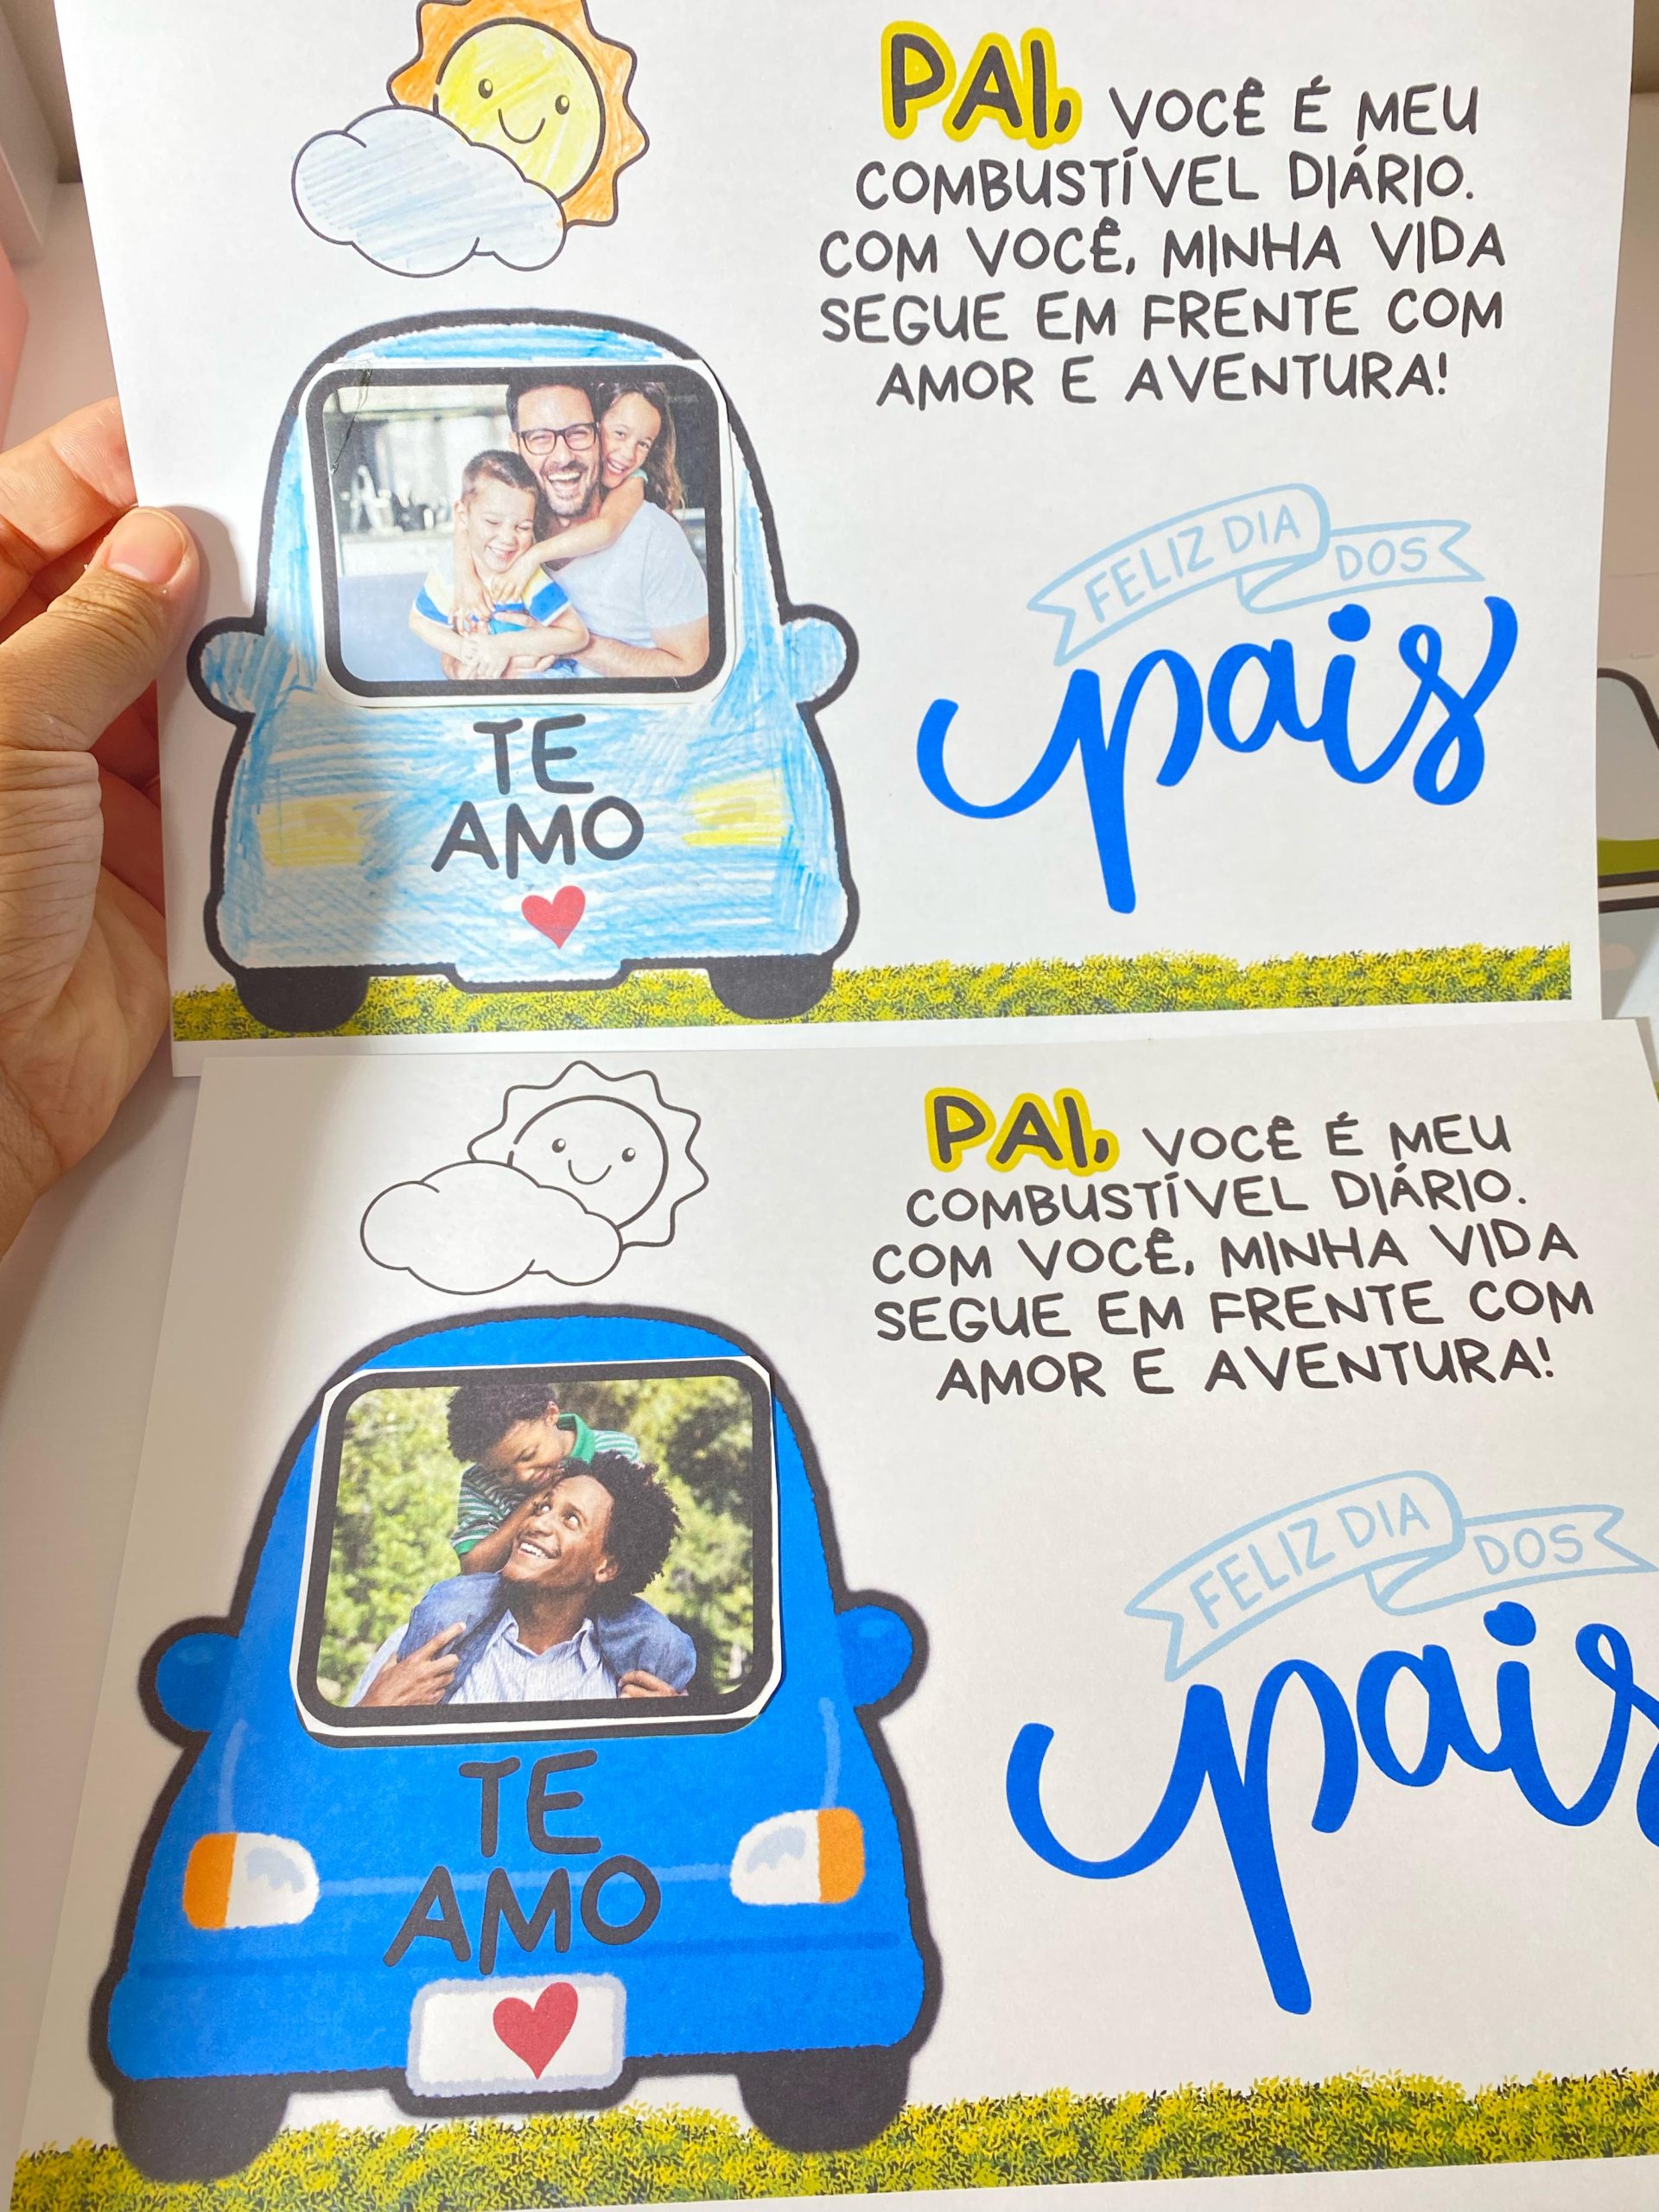 PAI, VOCÊ É MEU
COMBUSTÍVEL DIÁRIO.
COM VOCÊ, MINHA VIDA
SEGUE EM FRENTE COM
AMOR E AVENTURA!
FELIZ DIA DOS
pais
TE
AMO
PAI, VOCÊ É MEU
COMBUSTÍVEL DIÁRIO.
COM VOCÊ, MINHA VIDA
SEGUE EM FRENTE COM
AMOR E AVENTURA!
FELIZ DIA DOS
pais
TE
AMO